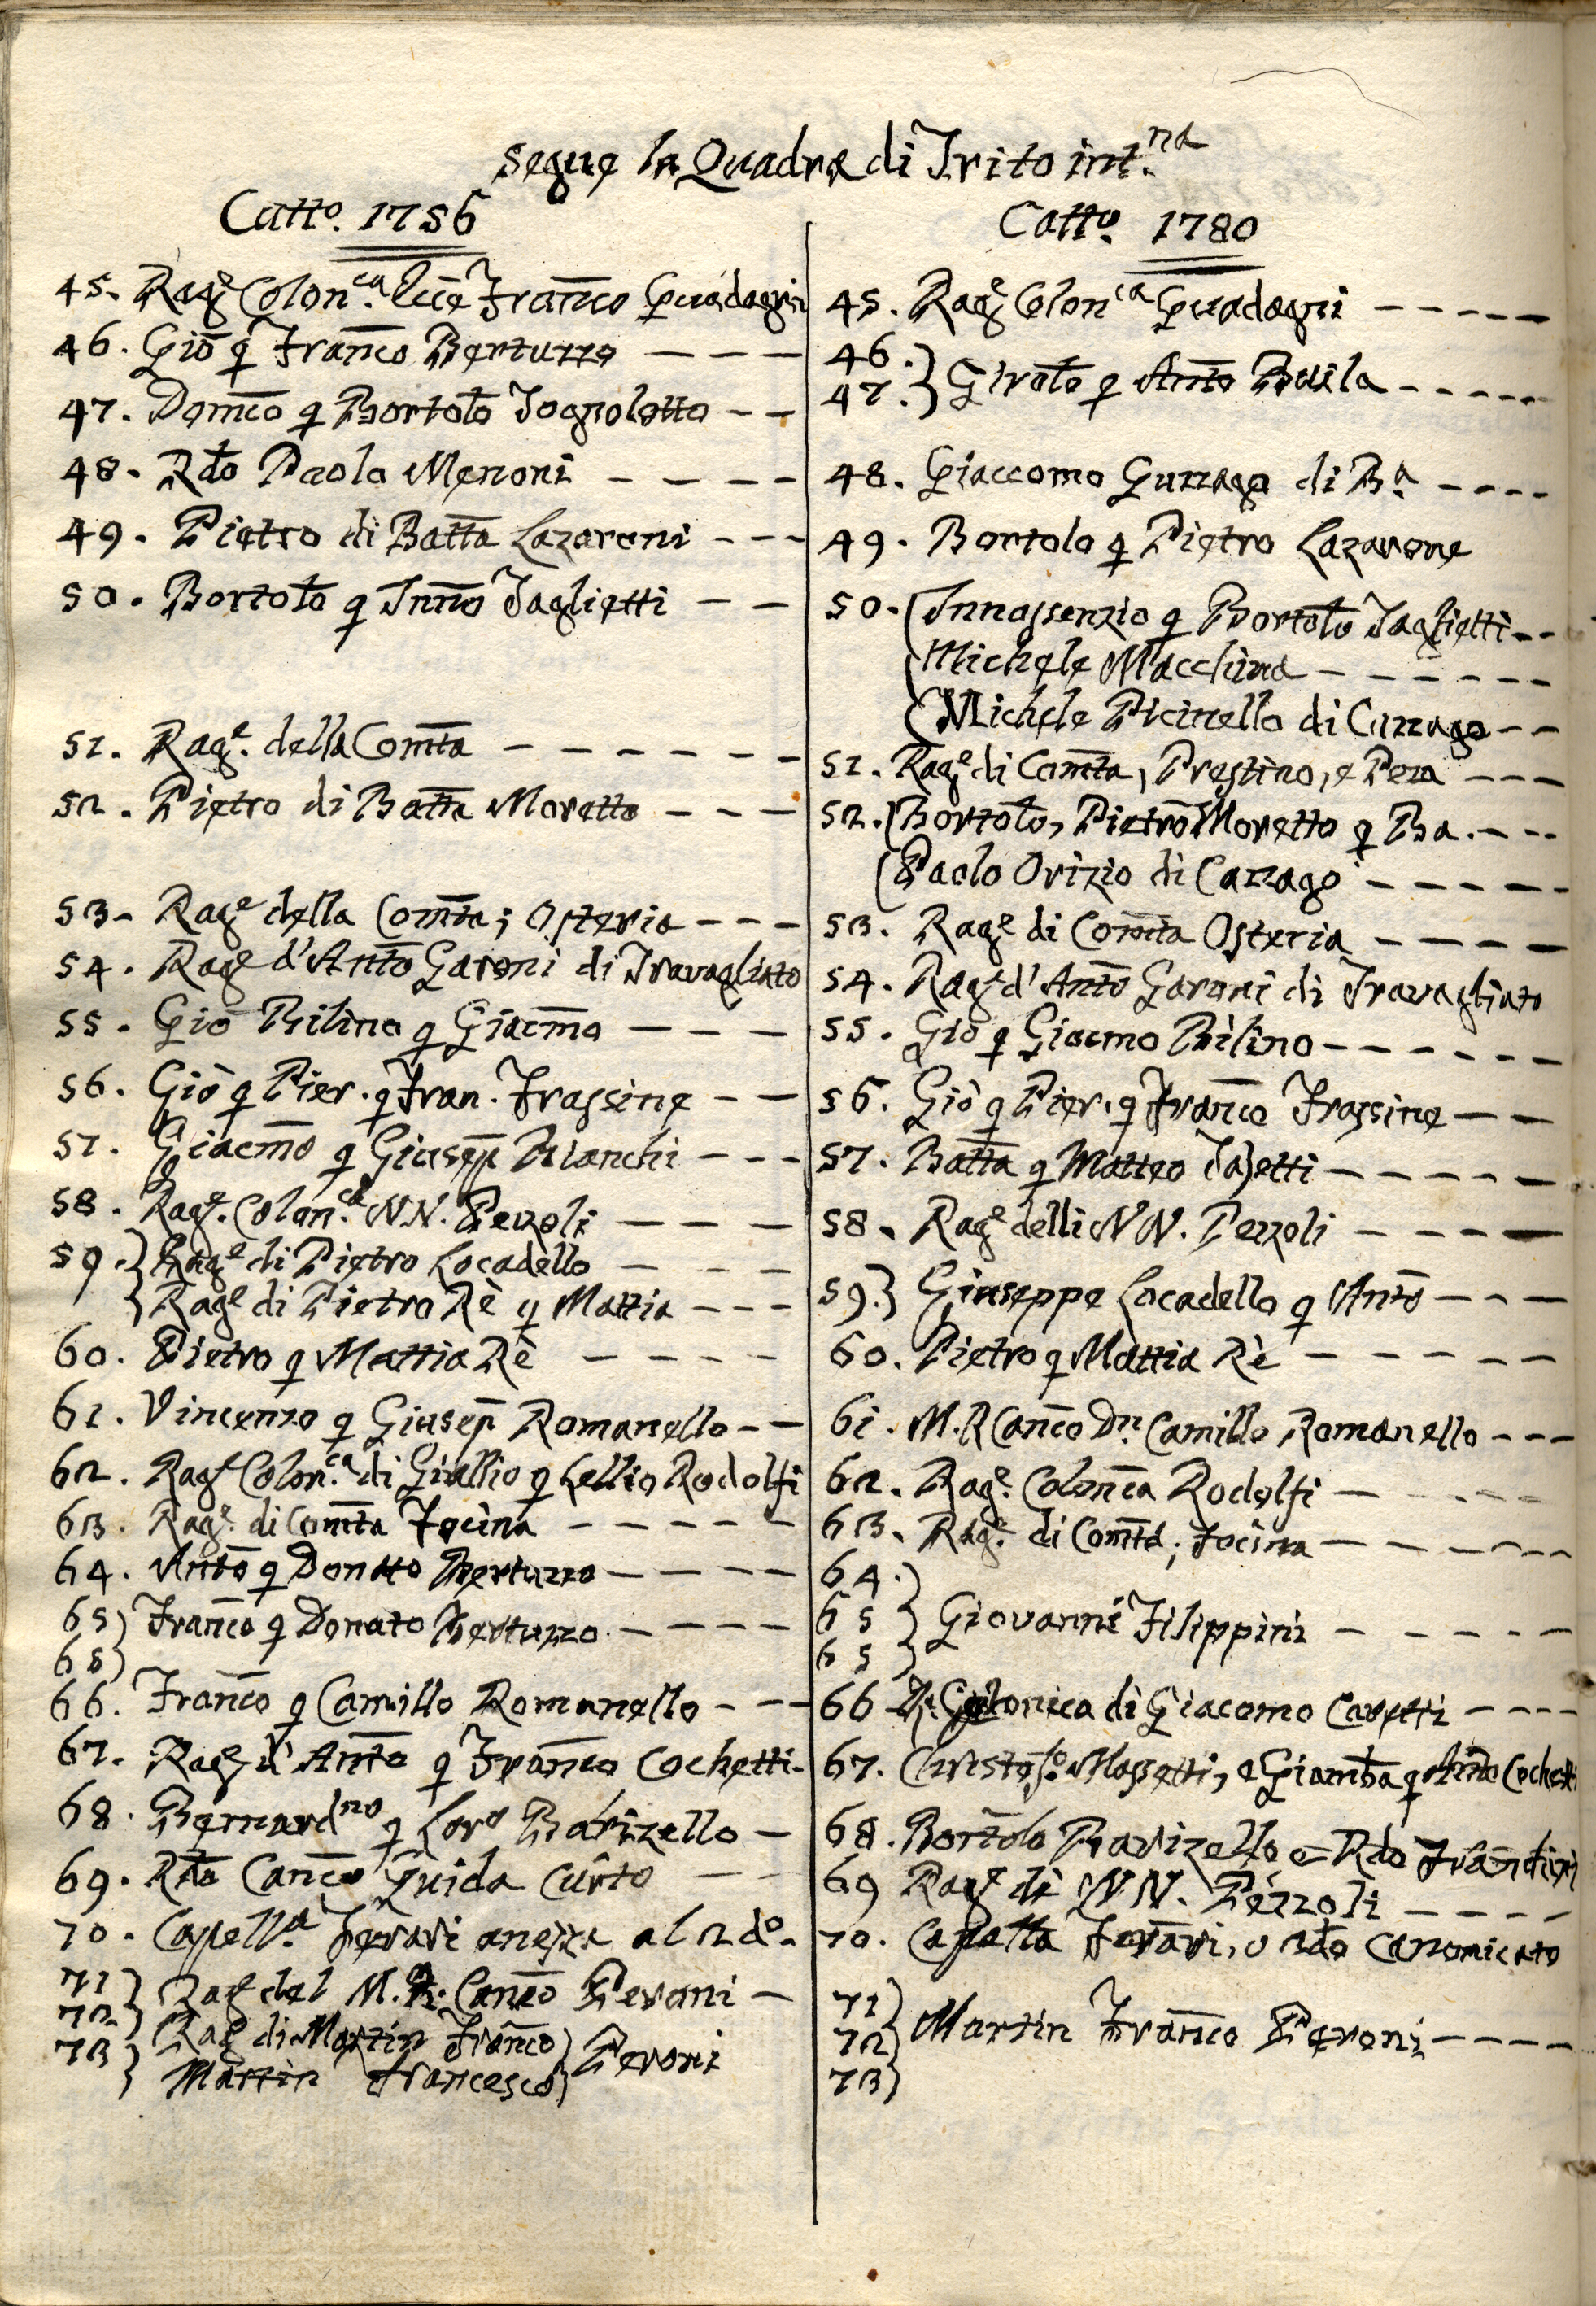 segue la Quadra di Trito int.na
Catto. 1756
45. Rage Colon.ca Franco Guadagni
46. Gio q Franco Bertuzzo
47. Domco q Bortolo Tognoletto
48. Rdo Paolo Menoni
49. Pietro di Batta Lazaroni
50. Bortolo q Inno Taglietti
51. Rage. della Comta
52. Pietro di Batta Moretto
53. Rage della Comta; Osteria
54. Rage d'Anto Garoni di Travagliato
55. Gio Bilino q Giacmo
56. Giò q Pier. q Fran. Frassine
57. Giacmo q Giusep Bianchi
58. Rage. Colon.ca NN. Pezzoli
59. Rage di Pietro Locadello
Rage di Pietro Rè q Mattia
60. Pietro q Mattia Rè
61. Vincenzo q Giusep Romanello
62. Rage Colon.ca di Giullio q Lellio Rodolfi
63. Rage. di Comta Focina
64. Anto q Donato Bertuzzo
65 Franco q Donato Bertuzzo
65
66. Franco q Camillo Romanello
67. Rage d'Anto q Franco Cochetti
68. Bernardno q Loro Barizello
69. Rdo Canco Guida Curto
70. Capell.a Ferari al 2do.
71 Rage del M.R. Canco Peroni
72 Rage di Martin Franco Peroni
73 Martin Francesco
Catto. 1780
45. Rage Colonca Guadagni
46.
47. Girolo q Anto
48. Giaccomo Guzzago di Ba.
49. Bortolo q Pietro Lazarone
50. Innossenzio q Bortolo Taglietti
Michele Macchina
Michele Picinello di Cazzago
51. Rage di Comta, Prestino, e Peza
52. Bortolo, Pietro Moretto q Ba.
Paolo Orizio di Cazzago
53. Rage di Comta Osteria
54. Rage d'Anto Garoni di Travagliato
55. Gio q Giacmo Bilino
56. Giò q Pier. q Franco Frassine
57. Batta q Matteo
58. Rage delli NN. Pezzoli
59. Giuseppe Locadello q Anto
60. Pietro q Mattia Rè
61. M.R Canco Dn. Camillo Romanello
62. Rage. Colonca Rodolfi
63. Rage. di Comta; Focina
64.
65 Giovanni Filippini
65
66 di Giacomo
67. Christofo. Mossetti, e Giamba q Anto Cochetti
68. Bortolo Barizello e Rdo
69 Rage di NN. Pezzoli
70. Capella Ferari, o 2do Canonicato
71
72 Martin Franco Peroni
73